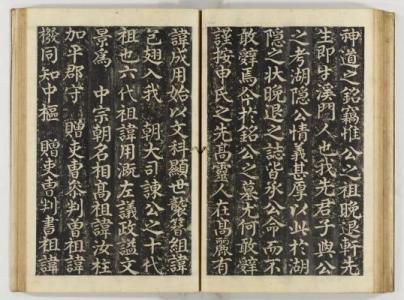 神道之銘竊惟 公之祖晚退軒先
生即牛溪門人也我先君子與公
之考湖隐公情義甚厚以此於湖
隐之状晚退之誌皆承公命而不
敢辭焉今於銘公之墓尤何敢辭
謹按申氏之先髙靈人在髙麗有
諱成用始以文科顯世襲簪組諱
包翅入我 朝大司諫公之十代
祖也六代祖諱用溉左議政謚文
景爲 中宗朝名相髙祖諱汝柱
加平郡守 贈吏曹叅判曽祖諱
橃同知中樞 贈吏曹判書祖諱